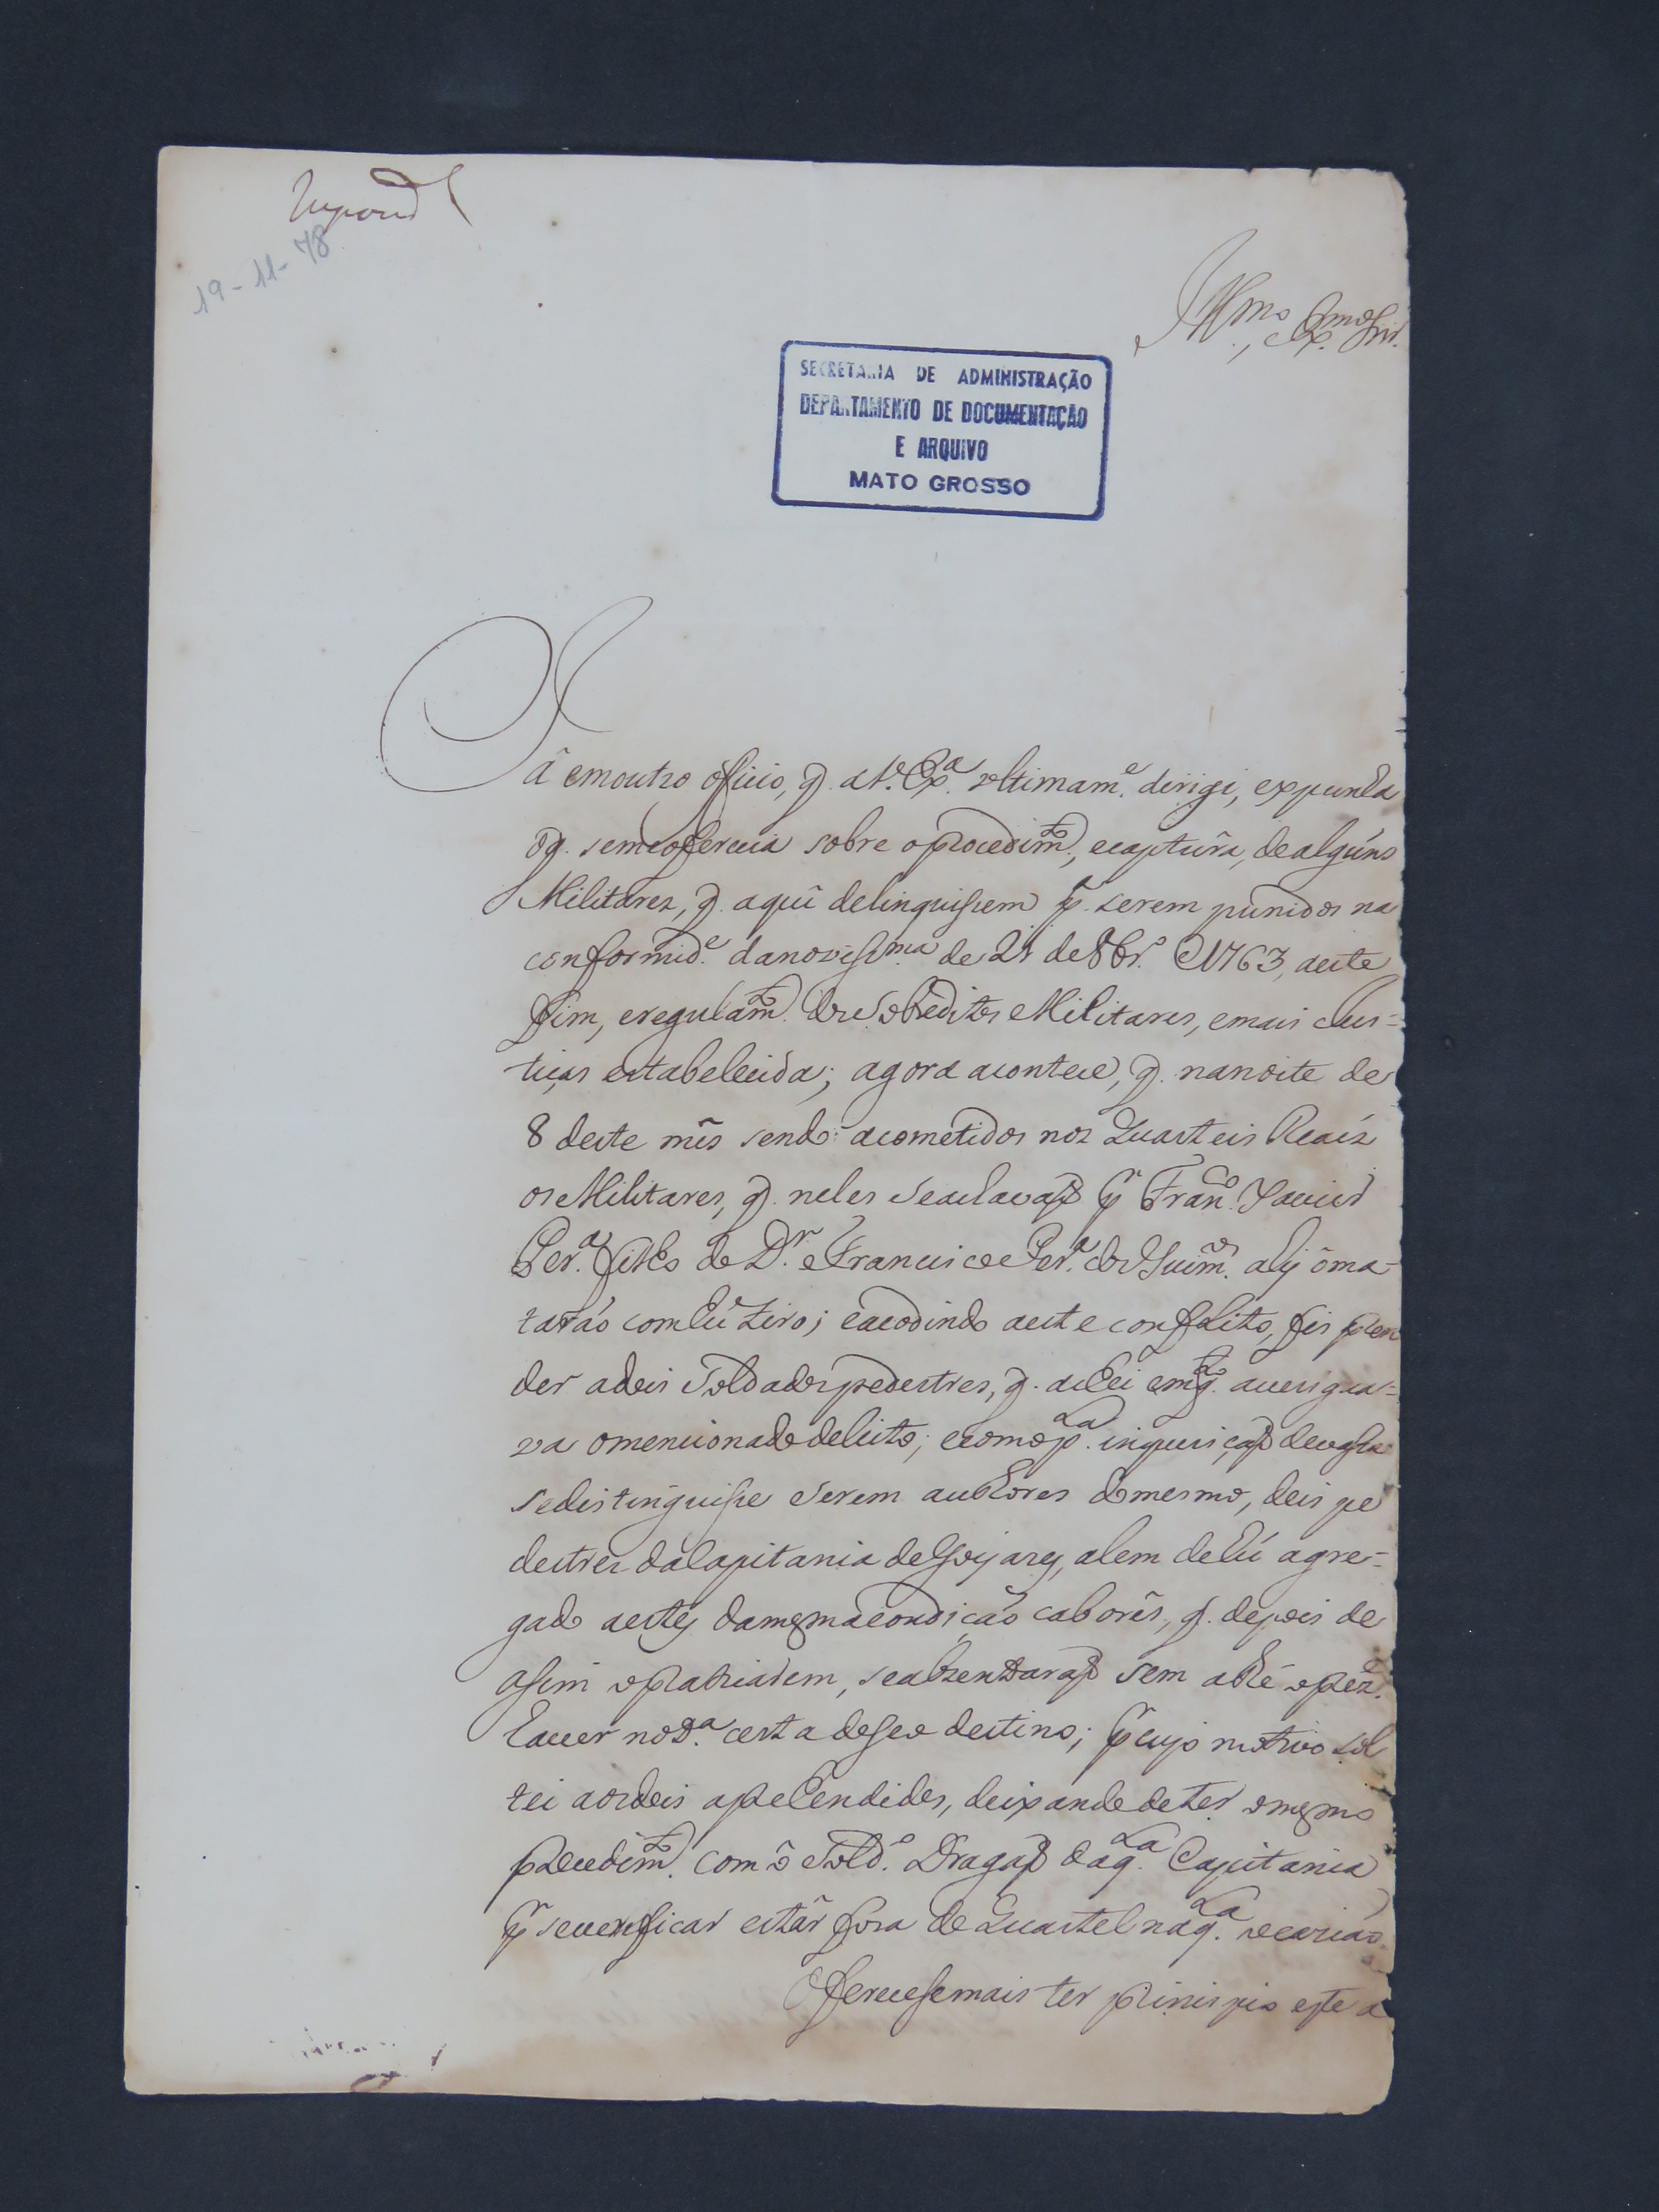 Respond.
19-11-78
Illmo., Exmo. Snr.
SECRETARIA DE ADMINISTRAÇÃO
DEPARTAMENTO DE DOCUMENTAÇÃO
E ARQUIVO
MATO GROSSO
Jâ em outro oficio, q. a V. Exa. ultimame. dirigi, expunha
o q. se me oferecia sobre o procedimto., e captura, de alguns
Militares, q. aqui delinquisem pa. serem punidos na
conformide. da novisima. de 21 de 8br.o 1763, a este
fim, e regulamto. dos sobreditos Militares, e mais Jus=
tiças estabelecida; agora acontece, q. na noite de
8 deste mês sendo acometidos nos Quarteis Reais
os Militares, q. neles se achavaõ pr. Franco. Xavier
Pera. filho de Dr. Francisco Pera. de Guimes. aly o ma-
taraõ com hũ tiro; e acodindo a este conflito, fis pren
der a dois Soldados pedestres, q. achei emqto. averigua=
va o mencionado delito; e como pla. inquiriçaõ devasa
se distinguise serem authores do mesmo, dois pe
destres da Capitania de Goyazes, alem de hũ agre=
gado a estes da mesma condição caborês, q. depois de
asim o praticarem, se abzentaraõ sem athé o prezte.
haver nota. certa de seo destino; pr. cujo motivo sol
tei aos dois aprehendidos, deixando de ter o mesmo
procedimto. com o Soldo. Dragaõ daqla. Capitania
pr. se verificar estâr fora de Quartel naqla. ocaziaõ.
Oferecese mais ter principio este a